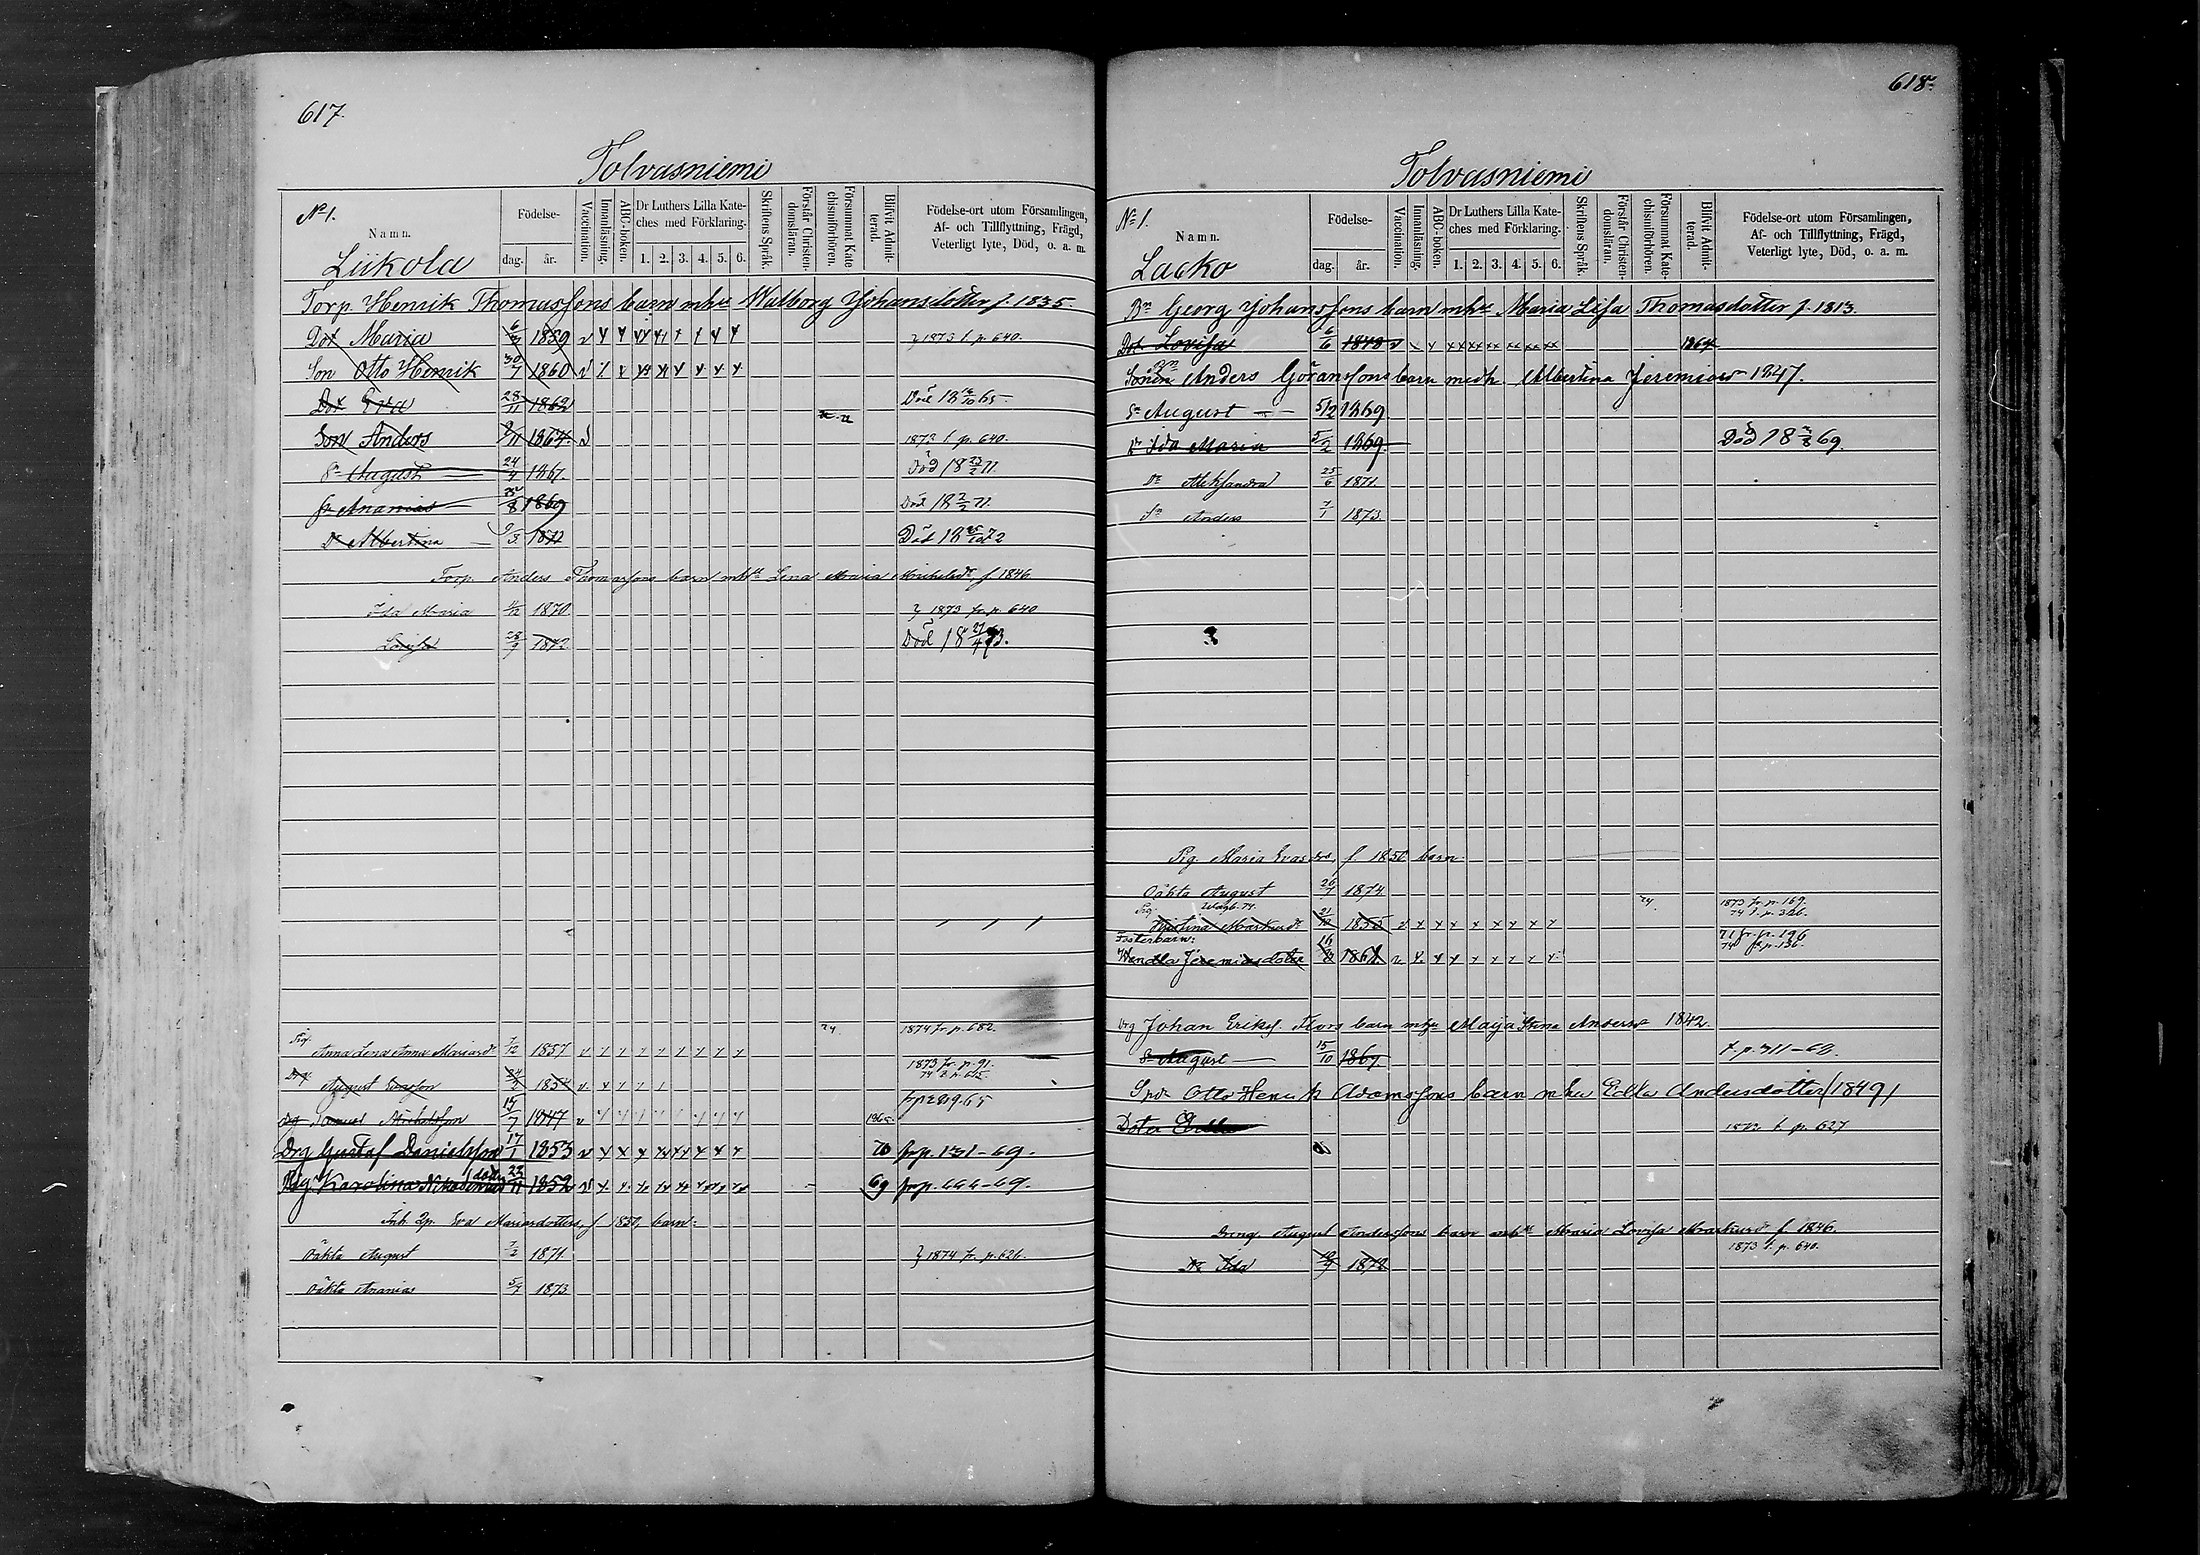 617.
Tolvasniemi
No 1.
Namn.
Liikola
Födelse-
dag. år.
Vaccination.
Innanläsning.
ABC-boken.
Dr Luthers Lilla Kate-
ches med Förklaring.
1. 2. 3. 4. 5. 6.
Skriftens Språk.
Förstår Christen-
domsläran.
Försummat Kate
chismiförhören.
Blifvit Admit-
terad.
Födelse-ort utom Församlingen,
Af- och Tillflyttning, Frägd,
Veterligt lyte, Död, o. a. m.
Torp. Henrik Thomassons barn mhu Walborg Johansdotter f. 1835.
Dot Maria 1859 } 1873 t. p. 640.
Son Otto Henrik 30/7 1860
Dot Eva 28/11 1862 Död
Son Anders 1864 1873 t. p. 640.
Sn August 24/4 1867. Död 18 23/2 71.
Sn Ananias 1869 Död 18 2/2 71.
Dr Albertina 9/3 1872 Död
Torp. Anders Thomassons barn mhu Lena Maria Michelsdr f 1846
Ida Maria 4/12 1870 } 1873 fr. p. 640
Lovisa 28/9 1872 Död 18 27/4 73.
Pig. Anna Lena Anna Mariasdr 7/12 1857 74. 1874 fr. p. 682.
Drg. August Evasson 24/2 1854 1873 fr. p. 91.
Drg Samuel Michelsson 15/7 1847 1865.
Drg Gustaf Danielsson 17/1 1853 70 frp. 131-69.
Pig. Karolina 23/11 1852 69 frp. 444-69.
Inh. Qp. Eva Mariasdotters, f 1850, barn:
Oäkta August 7/2 1871. } 1874 fr. p. 626.
Oäkta Ananias 5/7 1873.
618.
Tolvasniemi
No 1.
Namn.
Lacko
Födelse-
dag. år.
Vaccination.
Innanläsning.
ABC-boken.
Dr Luthers Lilla Kate-
ches med Förklaring.
1. 2. 3. 4. 5. 6.
Skriftens Språk.
Förstår Christen-
domsläran.
Försummat Kate-
chismiförhören.
Blifvit Admit-
terad.
Födelse-ort utom Församlingen,
Af- och Tillflyttning, Frägd,
Veterligt lyte, Död, o. a. m.
Bn Georg Johanssons barn mhu Maria Lisa Thomasdotter f. 1813.
Dot Lovisa 6/6 1848 1864
Sonen Anders Göranssons barn med h. Albertina Jeremiasdr 1847.
Sn August 5/2 1869
Dr Ida Maria 5/2 1869 Död
Dr Aleksandra 25/6 1871.
Sn Anders 7/1 1873.
Pig Maria Evasdrs, f 1850 barn
Oäkta August 26/7 1874
Pig. Kristina Markusdr 1855 74. 1873 fr. p. 169.
74 t. p. 326.
Fosterbarn: 71 fr. p. 196
Wendla Jeremiasdotter 1861 74 p. 136.
Drg Johan Erikss. Flors barn mhu Maija Stina Andersdr 1842.
Sn August 15/10 1867. t. p. 311-68.
Otto Henrik Adamssons barn mhu Edla Andersdotter (1849)
Doter t. p. 627
Dreng August Anderssons barn mhu Maria Lovisa Markusdr f 1846.
1873 t. p. 640.
Dr Ida 1872